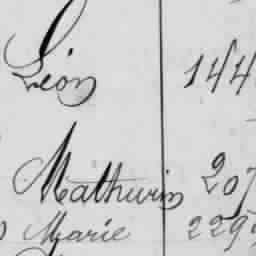 Léon 144
Mathurin 207
Marie 229